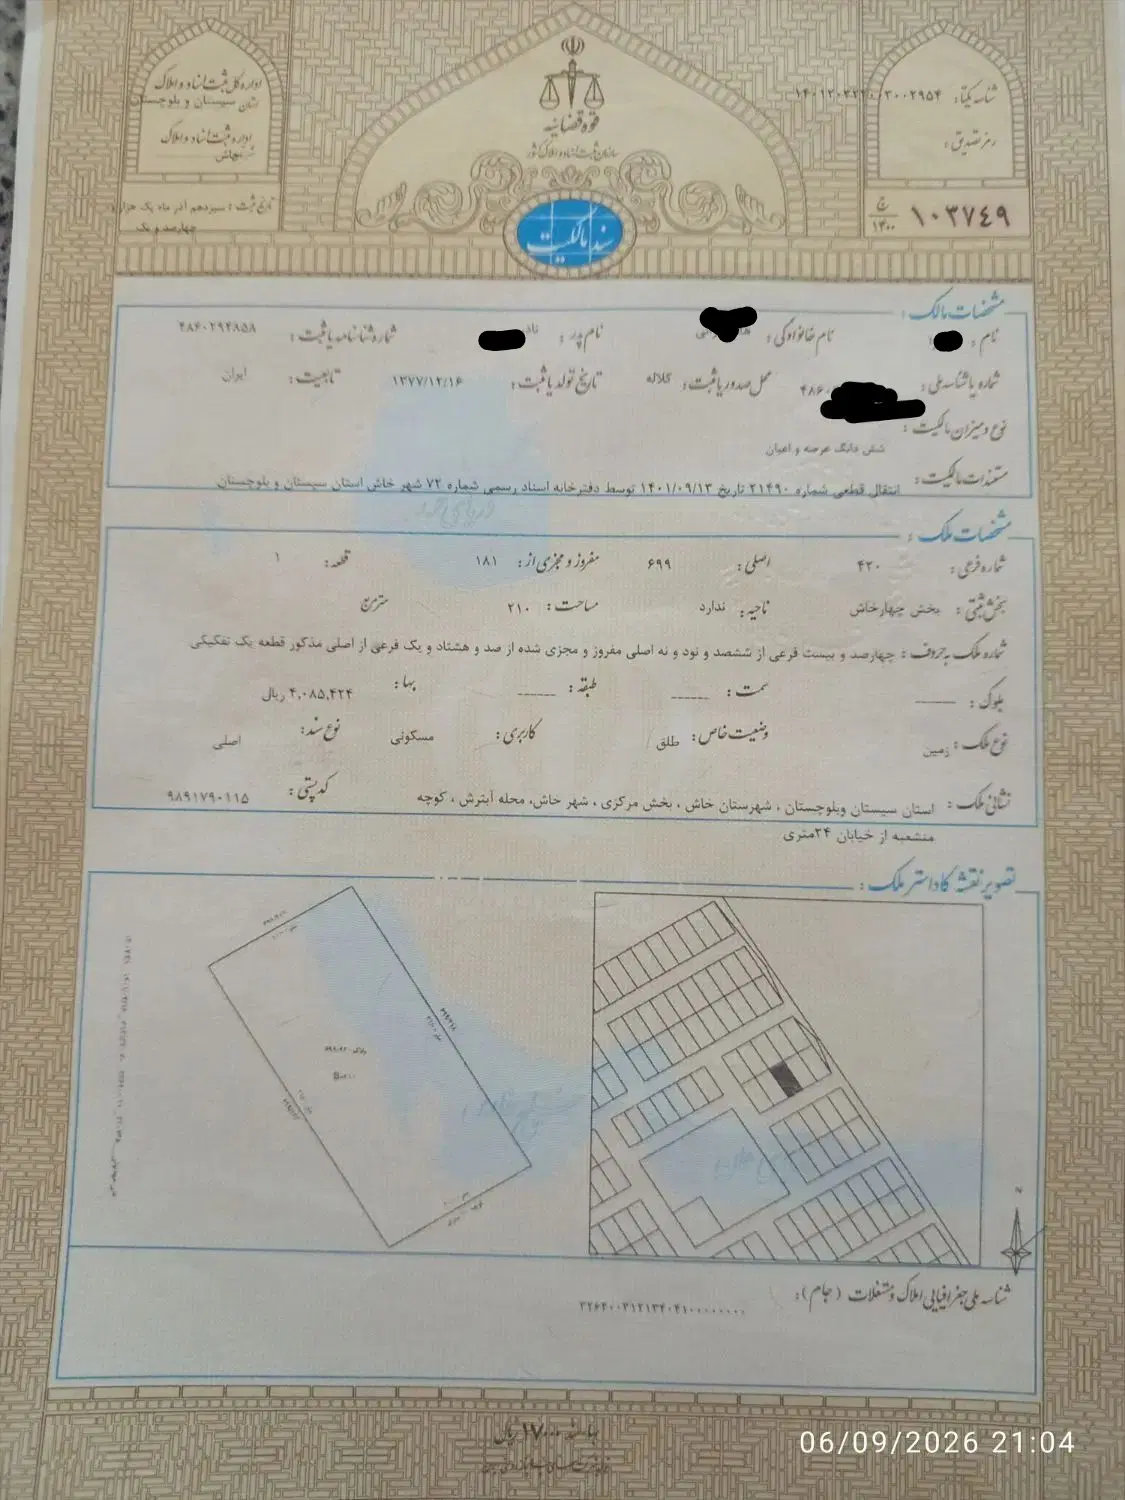 قوه قضائیه
سازمان ثبت اسناد و املاک کشور
سند مالکیت
اداره کل ثبت اسناد و املاک
استان سیستان و بلوچستان
اداره ثبت اسناد و املاک
خاش
تاریخ ثبت : سیزدهم آذر ماه یک هزار و
چهارصد و یک
شناسه یکتا:
رمز تصدیق :
۱۰۳۷۴۹ ج ۱۴۰۰
مشخصات مالک :
نام : نام خانوادگی : نام پدر : شماره شناسنامه یا ثبت : ۴۸۶۰۲۹۴۸۵۸
شماره یا شناسه ملی : ۴۸۶۰ محل صدور یا ثبت : کلاله تاریخ تولد یا ثبت : ۱۳۷۷/۱۲/۱۶ تابعیت : ایران
نوع و میزان مالکیت : شش دانگ عرصه و اعیان
مستندات مالکیت : انتقال قطعی شماره ۲۱۴۹۰ تاریخ ۱۴۰۱/۰۹/۱۳ توسط دفترخانه اسناد رسمی شماره ۷۲ شهر خاش استان سیستان و بلوچستان
مشخصات ملک :
شماره فرعی : ۴۲۰ اصلی : ۶۹۹ مفروز و مجزی از : ۱۸۱ قطعه : ۱
بخش ثبتی : بخش چهارخاش ناحیه : ندارد مساحت : ۲۱۰ مترمربع
شماره ملک به حروف : چهارصد و بیست فرعی از ششصد و نود و نه اصلی مفروز و مجزی شده از صد و هشتاد و یک فرعی از اصلی مذکور قطعه یک تفکیکی
بلوک : ------ سمت : ------ طبقه : ------ بها : ۴,۰۸۵,۴۲۴ ریال
نوع ملک : زمین وضعیت خاص : طلق کاربری : مسکونی نوع سند : اصلی
نشانی ملک : استان سیستان وبلوچستان ، شهرستان خاش ، بخش مرکزی ، شهر خاش، محله آبترش ، کوچه کد پستی : ۹۸۹۱۷۹۰۱۱۵
منشعبه از خیابان ۲۴متری
تصویر نقشه کاداستر ملک :
دریای خزر
خلیج فارس
N
شناسه ملی جغرافیایی املاک و مستغلات (جام) :
بها سند ۱۷۰۰۰ ریال
06/09/2026 21:04